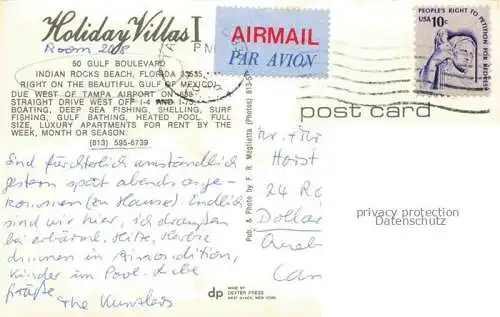 Holiday Villas I
Room 208
50 GULF BOULEVARD
INDIAN ROCKS BEACH, FLORIDA 33535
RIGHT ON THE BEAUTIFUL GULF OF MEXICO
DUE WEST OF TAMPA AIRPORT ON 688
STRAIGHT DRIVE WEST OFF I-4 AND I-75.
BOATING, DEEP SEA FISHING, SHELLING, SURF
FISHING, GULF BATHING, HEATED POOL. FULL
SIZE, LUXURY APARTMENTS FOR RENT BY THE
WEEK, MONTH OR SEASON.
(813) 595-6739
AIRMAIL
PAR AVION
PEOPLE'S RIGHT TO PETITION FOR REDRESS
USA 10c
post card
Sind fürchterlich umständlich
gestern spät abends ange-
kommen (zu Hause) Endlich
sind wir hier, ich draußen
bei Hitze,
drinnen in Aircondition,
Kinder im Pool. Liebe
Grüße
The
Pub. & Photo by F. R. Maglietta (Photos) 813-5
Mr. +
Horst
24
Dollar
Can
privacy protection
Datenschutz
dp
MADE BY
DEXTER PRESS
WEST NYACK, NEW YORK